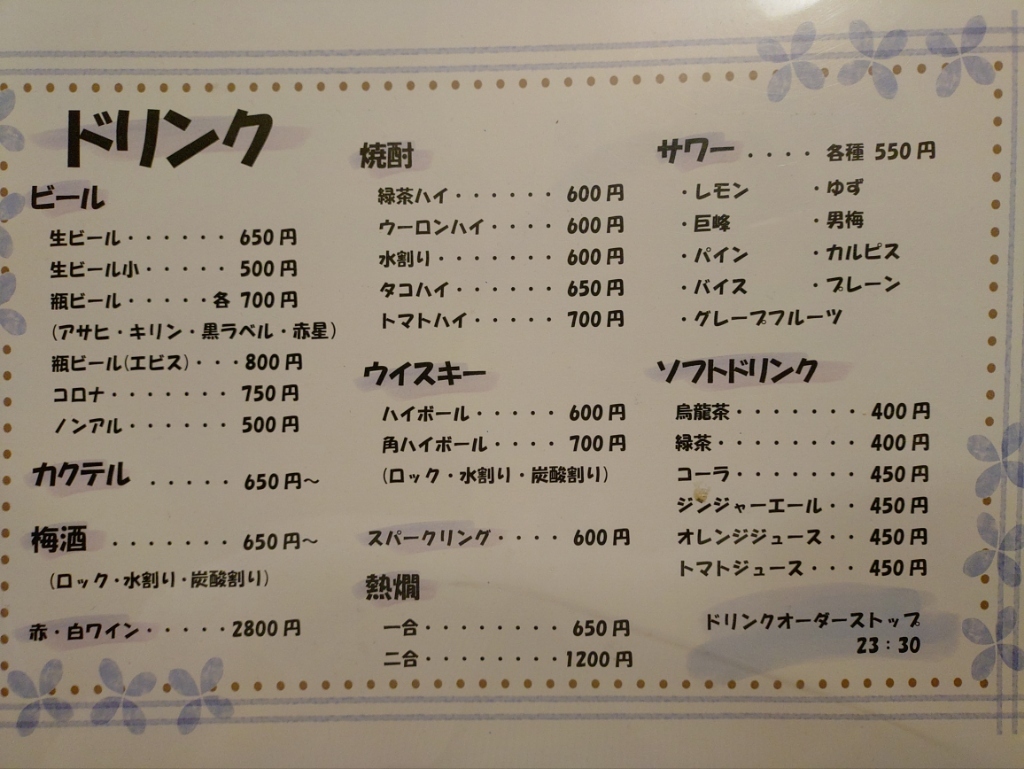 ドリンク
ビール
生ビール・・・・・・ 650円
生ビール小・・・・・ 500円
瓶ビール・・・・・各 700円
(アサヒ・キリン・黒ラベル・赤星)
瓶ビール(エビス)・・・800円
コロナ・・・・・・・ 750円
ノンアル・・・・・・ 500円
カクテル ・・・・・ 650円～
梅酒 ・・・・・・・ 650円～
(ロック・水割り・炭酸割り)
赤・白ワイン・・・・・2800円
焼酎
緑茶ハイ・・・・・・ 600円
ウーロンハイ・・・・ 600円
水割り・・・・・・・ 600円
タコハイ・・・・・・ 650円
トマトハイ・・・・・ 700円
ウイスキー
ハイボール・・・・・ 600円
角ハイボール・・・・ 700円
(ロック・水割り・炭酸割り)
スパークリング・・・・ 600円
熱燗
一合・・・・・・・・ 650円
二合・・・・・・・・1200円
サワー ・・・・ 各種 550円
・レモン ・ゆず
・巨峰 ・男梅
・パイン ・カルピス
・バイス ・プレーン
・グレープフルーツ
ソフトドリンク
烏龍茶・・・・・・・ 400円
緑茶・・・・・・・・ 400円
コーラ・・・・・・・ 450円
ジンジャーエール・・ 450円
オレンジジュース・・ 450円
トマトジュース・・・ 450円
ドリンクオーダーストップ
23：30